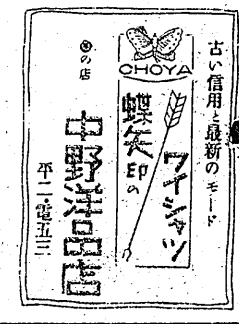 古い信用と最新のモード
CHOYA
蝶矢印の
ワイシャツ
の店
中野洋品店
平二・電五三